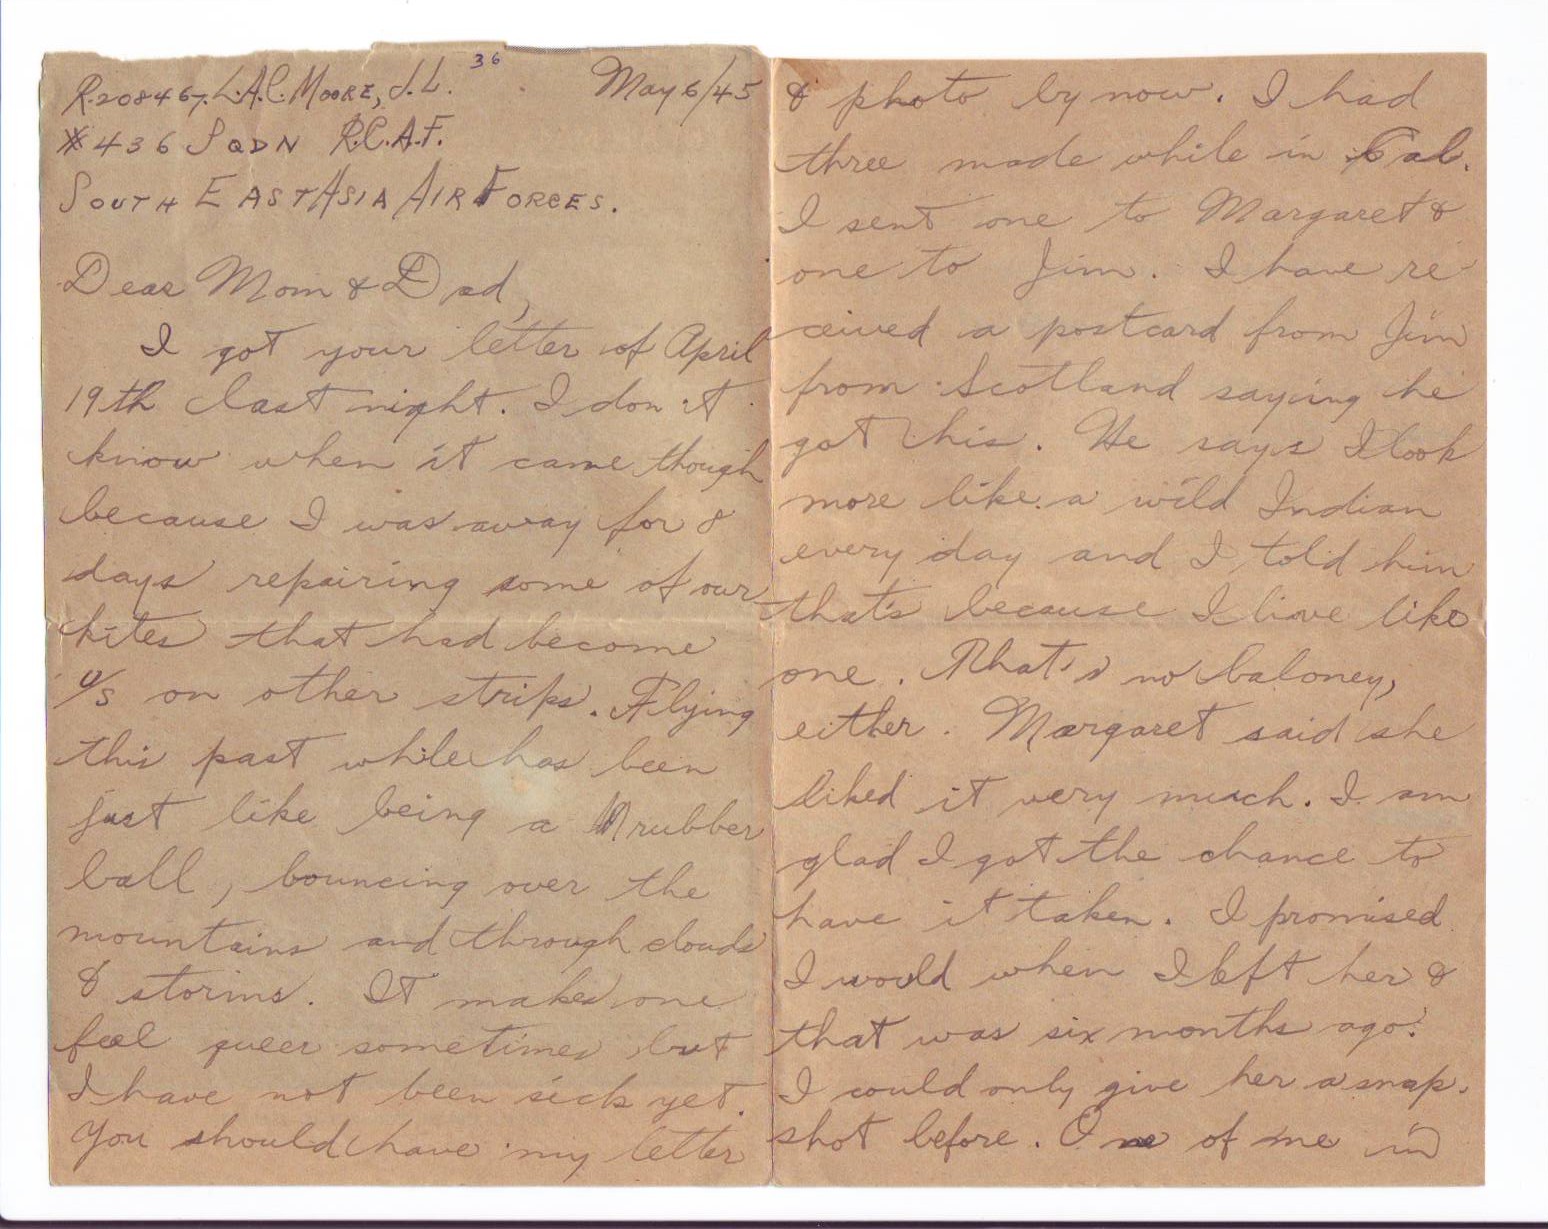 36
R.208467. L.A.C. MOORE, J.L. May 6/45
#436 SQDN R.C.A.F.
SOUTH EAST ASIA AIR FORCES.
Dear Mom & Dad,
I got your letter of April
19th last night. I don't
know when it came though
because I was away for 8
days repairing some of our
kites that had become
u/s on other strips. Flying
this past while has been
just like being a rubber
ball, bouncing over the
mountains and through clouds
& storms. It makes one
feel queer sometimes but
I have not been sick yet.
You should have my letter
& photo by now. I had
three made while in Cal.
I sent one to Margaret &
one to Jim. I have re
ceived a postcard from Jim
from Scotland saying he
got his. He says I look
more like a wild Indian
every day and I told him
that's because I live like
one. That's no baloney,
either. Margaret said she
liked it very much. I am
glad I got the chance to
have it taken. I promised
I would when I left her &
that was six months ago.
I could only give her a snap-
shot before. One of me in